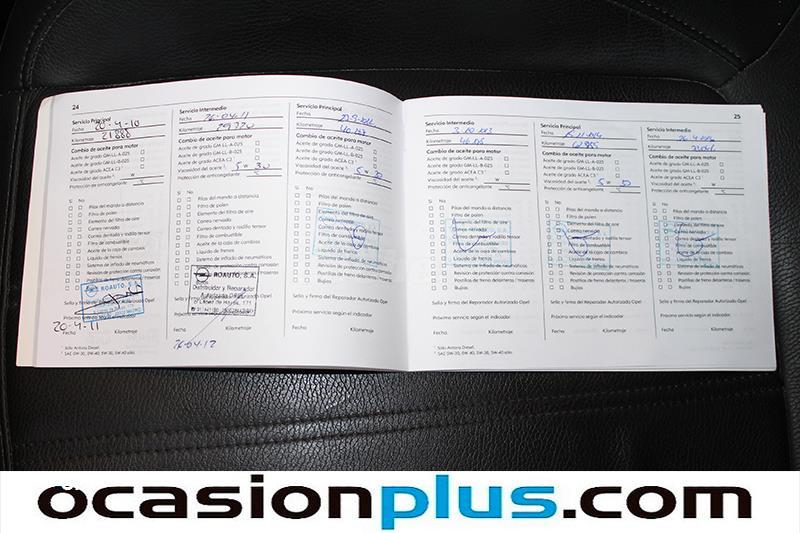 24
Servicio Principal
Fecha 20-4-10
Kilometraje 21888
Cambio de aceite para motor
Aceite de grado GM-LL-A-025
Aceite de grado GM-LL-B-025
Aceite de grado ACEA C3
Viscosidad del aceite W
Protección de anticongelante
Si No
Pilas del mando a distancia
Filtro de polen
Elemento del filtro de aire
Correa nervada
Correa dentada y rodillo tensor
Filtro de combustible
Aceite de la caja de cambios
Líquido de frenos
Sistema de inflado de neumáticos
Revisión de protección contra corrosión
Pastillas de freno delanteras / traseras
Bujías
ROAUTO, S.A.
Fecha Kilometraje
20-4-11
Sólo Antara Diesel.
SAE 0W-30, 0W-40, 5W-30, 5W-40 sólo.
Servicio Intermedio
Fecha 26-04-11
Kilometraje
Cambio de aceite para motor
Aceite de grado GM-LL-A-025
Aceite de grado GM-LL-B-025
Aceite de grado ACEA C3
Viscosidad del aceite 5 W 30
Protección de anticongelante
Si No
Pilas del mando a distancia
Filtro de polen
Elemento del filtro de aire
Correa nervada
Correa dentada y rodillo tensor
Filtro de combustible
Aceite de la caja de cambios
Líquido de frenos
Sistema de inflado de neumáticos
Revisión de protección contra corrosión
Pastillas de freno delanteras / traseras
Bujías
ROAUTO, S.A.
Distribuidor y Reparador
Autorizado OPEL
Fecha Kilometraje
26-04-12
Servicio Principal
Fecha
Kilometraje
Cambio de aceite para motor
Aceite de grado GM-LL-A-025
Aceite de grado GM-LL-B-025
Aceite de grado ACEA C3
Viscosidad del aceite 5 W 30
Protección de anticongelante
Si No
Sello y firma del Reparador Autorizado Opel
Próximo servicio según el indicador
Fecha Kilometraje
25
Servicio Intermedio
Fecha
Kilometraje
Cambio de aceite para motor
Aceite de grado GM-LL-A-025
Aceite de grado GM-LL-B-025
Aceite de grado ACEA C3
Viscosidad del aceite W
Protección de anticongelante
Si No
Pilas del mando a distancia
Filtro de polen
Elemento del filtro de aire
Correa nervada
Correa dentada y rodillo tensor
Filtro de combustible
Aceite de la caja de cambios
Líquido de frenos
Sistema de inflado de neumáticos
Revisión de protección contra corrosión
Pastillas de freno delanteras / traseras
Bujías
Sello y firma del Reparador Autorizado Opel
Próximo servicio según el indicador
Fecha Kilometraje
Sólo Antara Diesel.
SAE 0W-30, 0W-40, 5W-30, 5W-40 sólo.
Servicio Principal
Fecha
Kilometraje
Cambio de aceite para motor
Aceite de grado GM-LL-A-025
Aceite de grado GM-LL-B-025
Aceite de grado ACEA C3
Viscosidad del aceite 5 W 30
Protección de anticongelante
Si No
Pilas del mando a distancia
Filtro de polen
Elemento del filtro de aire
Correa nervada
Correa dentada y rodillo tensor
Filtro de combustible
Aceite de la caja de cambios
Líquido de frenos
Sistema de inflado de neumáticos
Revisión de protección contra corrosión
Pastillas de freno delanteras / traseras
Bujías
Sello y firma del Reparador Autorizado Opel
Próximo servicio según el indicador
Fecha Kilometraje
Servicio Intermedio
Fecha
Kilometraje
Cambio de aceite para motor
Aceite de grado GM-LL-A-025
Aceite de grado GM-LL-B-025
Aceite de grado ACEA C3
Viscosidad del aceite W
Protección de anticongelante
Si No
Sello y firma del Reparador Autorizado Opel
Próximo servicio según el indicador
Fecha Kilometraje
ocasionplus.com